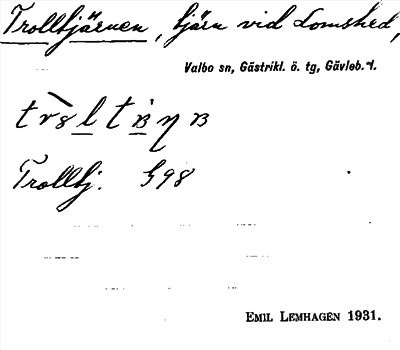 Trolltjärnen, tjärn vid Lomshed,
Valbo sn, Gästrikl. ö. tg, Gävleb. l.
Trolltj. G98
EMIL LEMHAGEN 1931.